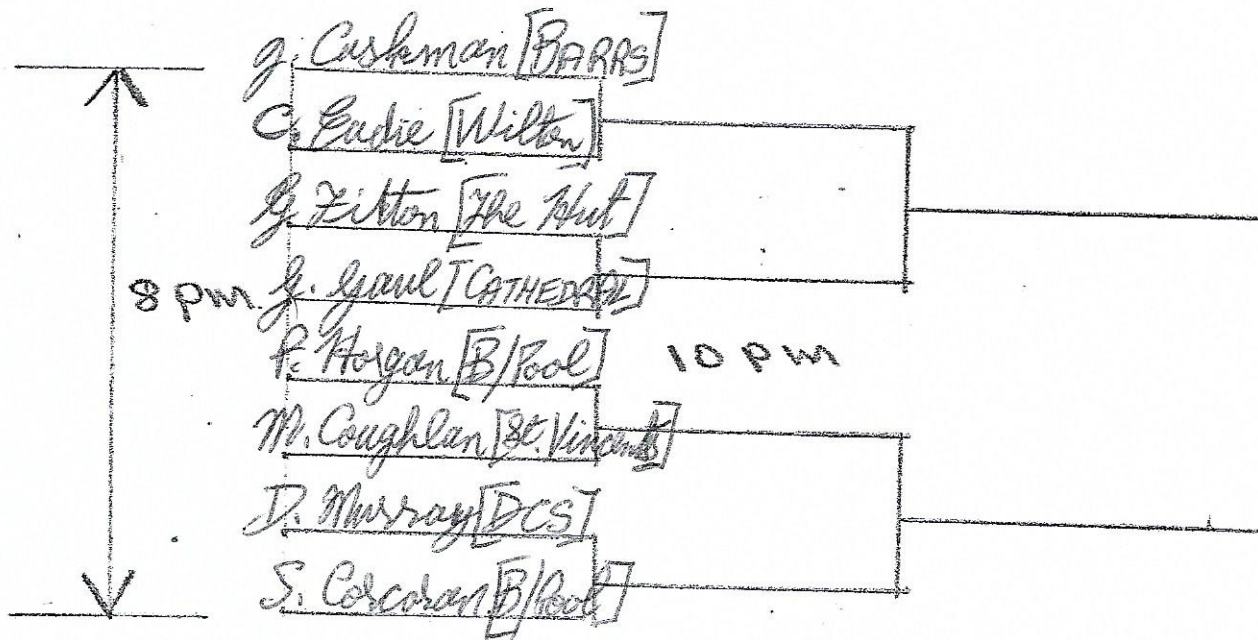 g. Cashman [BARRS]
C. Eadie [Wilton]
G. Fitton [The Hut]
8 pm. G. Gaul [CATHEDRAL]
P. Horgan [B/Pool] 10 pm
M. Coughlan [St. Vincents]
D. Murray [DCS]
S. Corcoran [B/Pool]